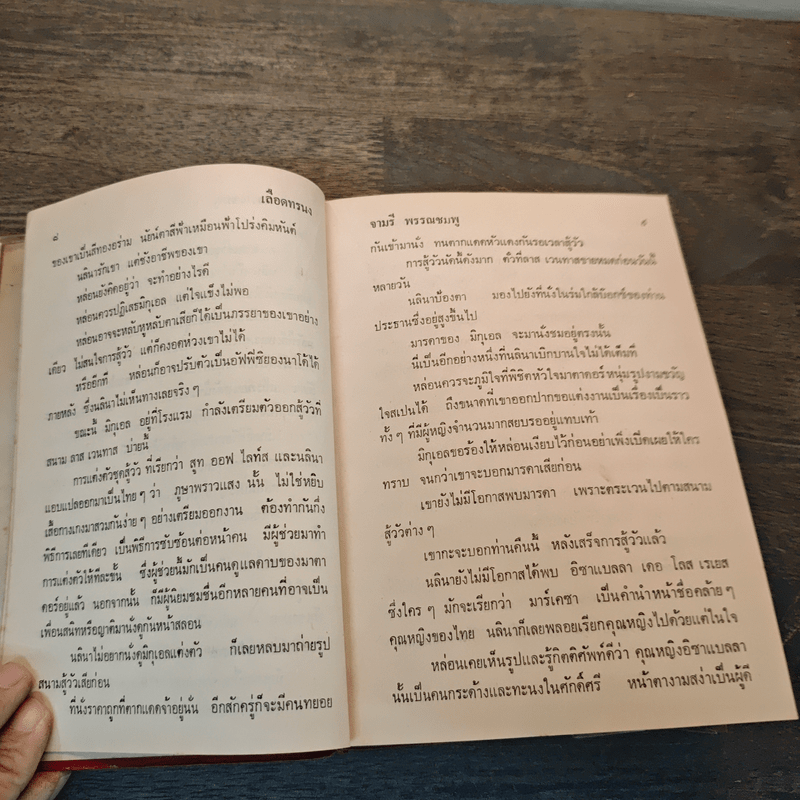 ๘
เลือดทรนง
ของเขาเป็นสีทองอร่าม นัยน์ตาสีฟ้าเหมือนฟ้าโปร่งคิมหันต์
นลินารักเขา แต่ชังอาชีพของเขา
หล่อนยังคิดอยู่ว่า จะทำอย่างไรดี
หล่อนควรปฏิเสธมิกุเอล แต่ใจแข็งไม่พอ
หล่อนอาจจะหลับหูหลับตาเสียก็ได้เป็นภรรยาของเขาอย่าง
เดียว ไม่สนใจการสู้วัว แต่ก็คงอดห่วงเขาไม่ได้
หรืออีกที หล่อนก็อาจปรับตัวเป็นอัฟฟิซิยองนาโดได้
ภายหลัง ซึ่งนลินาไม่เห็นทางเลยจริง ๆ
ขณะนี้ มิกุเอล อยู่ที่โรงแรม กำลังเตรียมตัวออกสู้วัวที่
สนาม ลาส เวนทาส บ่ายนี้
การแต่งตัวชุดสู้วัว ที่เรียกว่า สูท ออฟ ไลท์ส และนลินา
แอบแปลออกมาเป็นไทย ๆ ว่า ภูษาพราวแสง นั้น ไม่ใช่หยิบ
เสื้อกางเกงมาสวมกันง่าย ๆ อย่างเตรียมออกงาน ต้องทำกันถึง
พิธีการเลยทีเดียว เป็นพิธีการซับซ้อนต่อหน้าคน มีผู้ช่วยมาทำ
การแต่งตัวให้ทีละชิ้น ซึ่งผู้ช่วยนี้มักเป็นคนดูแลดาบของมาตา
ดอร์อยู่แล้ว นอกจากนั้น ก็มีผู้นิยมชมชื่นอีกหลายคนที่อาจเป็น
เพื่อนสนิทหรือญาติมานั่งดูกันหน้าสลอน
นลินาไม่อยากนั่งดูมิกุเอลแต่งตัว ก็เลยหลบมาถ่ายรูป
สนามสู้วัวเสียก่อน
ที่นั่งราคาถูกที่ตากแดดจ้าอยู่นั่น อีกสักครู่ก็จะมีคนทยอย
จามรี พรรณชมพู
๙
กันเข้ามานั่ง ทนตากแดดหัวแดงกันรอเวลาสู้วัว
การสู้วัวนัดนี้ดังมาก ตั๋วที่ลาส เวนทาสขายหมดก่อนวันนี้
หลายวัน
นลินาป้องตา มองไปยังที่นั่งในร่มใกล้บ๊อกซ์ของท่าน
ประธานซึ่งอยู่สูงขึ้นไป
มารดาของ มิกุเอล จะมานั่งชมอยู่ตรงนั้น
นี่เป็นอีกอย่างหนึ่งที่นลินาเบิกบานใจไม่ได้เต็มที่
หล่อนควรจะภูมิใจที่พิชิตหัวใจมาตาดอร์หนุ่มรูปงามขวัญ
ใจสเปนได้ ถึงขนาดที่เขาออกปากขอแต่งงานเป็นเรื่องเป็นราว
ทั้ง ๆ ที่มีผู้หญิงจำนวนมากสยบรออยู่แทบเท้า
มิกุเอลขอร้องให้หล่อนเงียบไว้ก่อนอย่าเพิ่งเปิดเผยให้ใคร
ทราบ จนกว่าเขาจะบอกมารดาเสียก่อน
เขายังไม่มีโอกาสพบมารดา เพราะตระเวนไปตามสนาม
สู้วัวต่าง ๆ
เขากะจะบอกท่านคืนนี้ หลังเสร็จการสู้วัวแล้ว
นลินายังไม่มีโอกาสได้พบ อิซาแบลลา เดอ โลส เรเยส
ซึ่งใคร ๆ มักจะเรียกว่า มาร์เคซา เป็นคำนำหน้าชื่อคล้าย ๆ
คุณหญิงของไทย นลินาก็เลยพลอยเรียกคุณหญิงไปด้วยแต่ในใจ
หล่อนเคยเห็นรูปและรู้กิตติศัพท์ดีว่า คุณหญิงอิซาแบลลา
นั้นเป็นคนกระด้างและทะนงในศักดิ์ศรี หน้าตางามสง่าเป็นผู้ดี